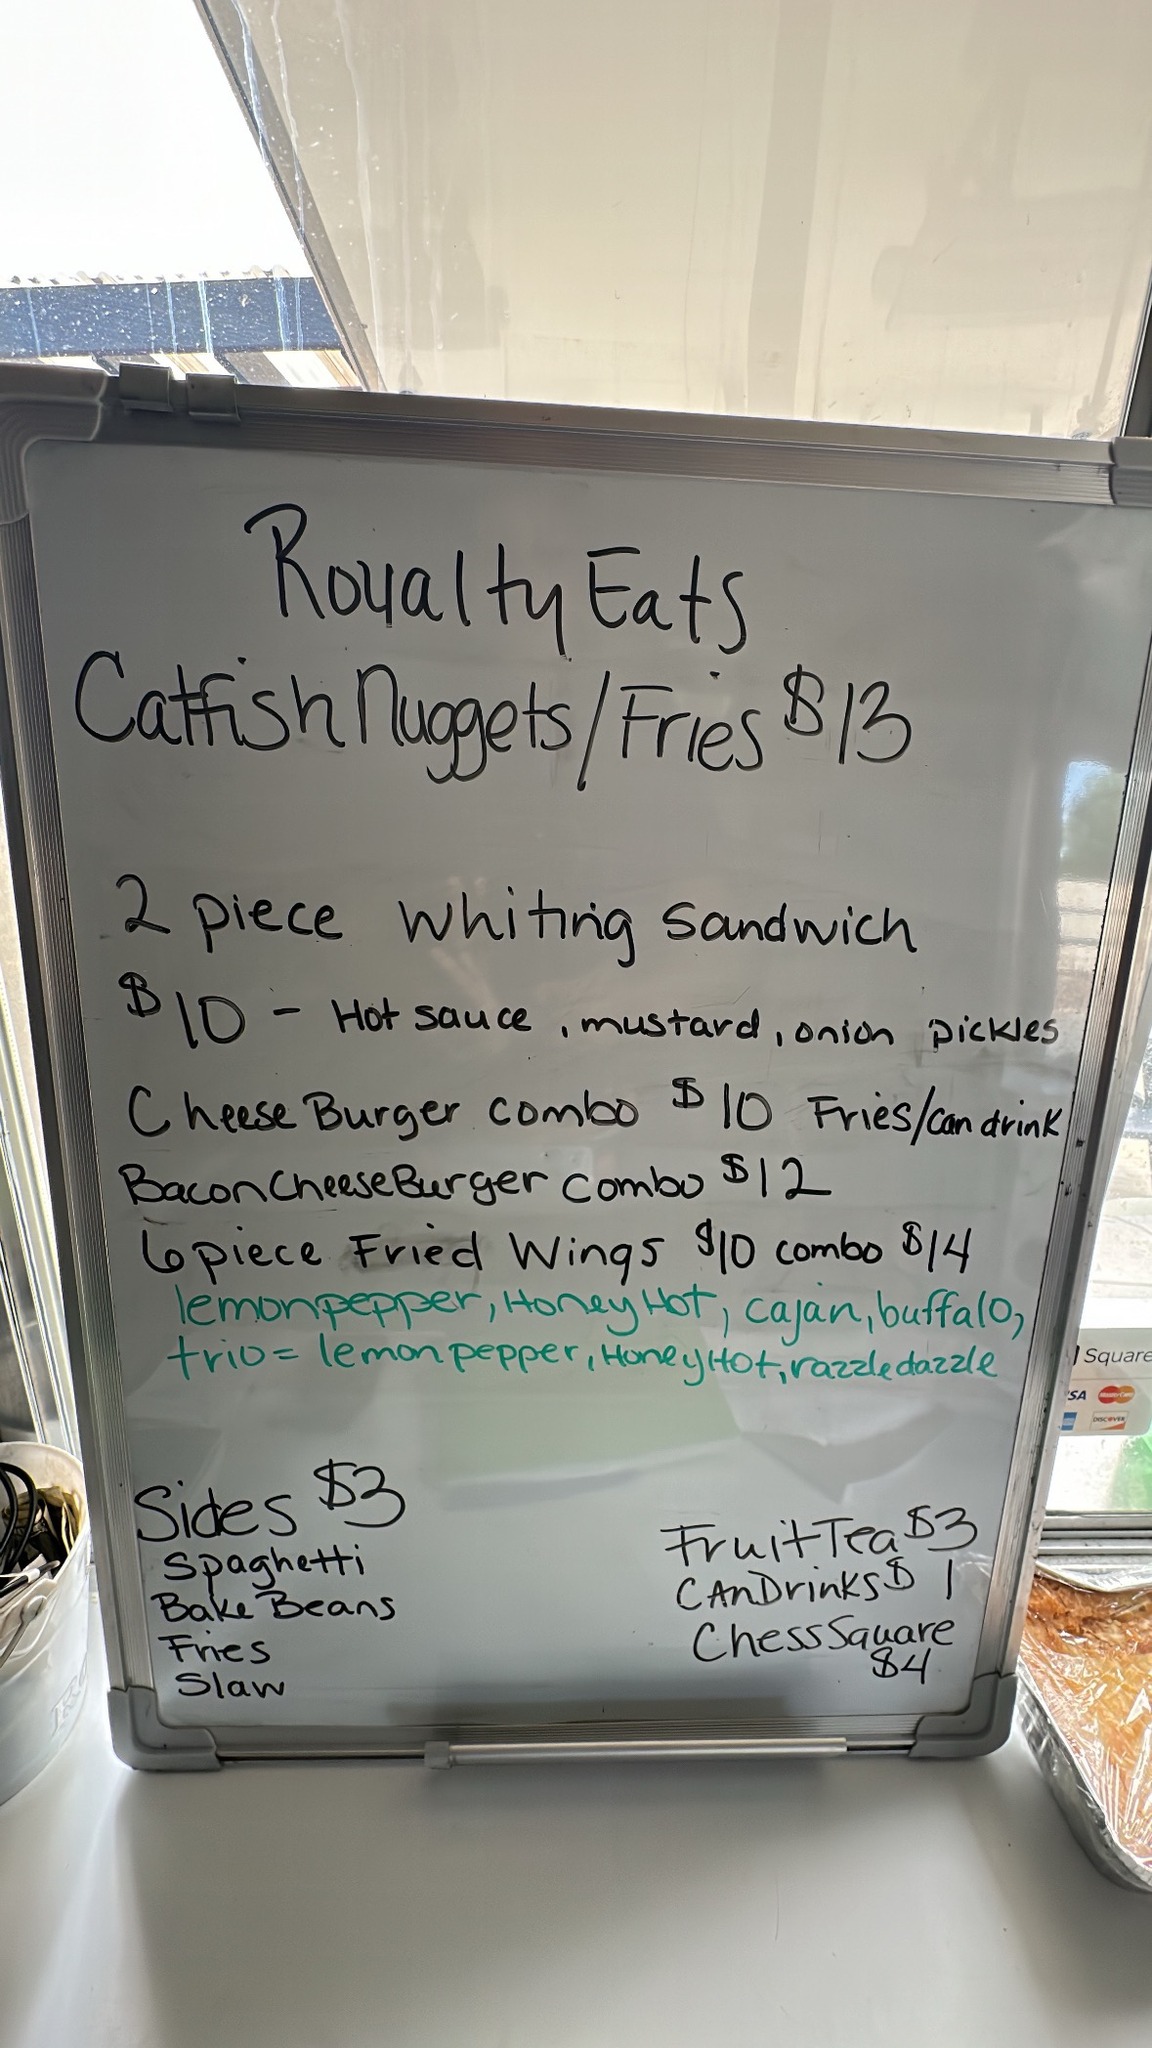 Royalty Eats
Catfish Nuggets/Fries $13
2 piece Whiting Sandwich
$10 - Hot sauce, mustard, onion pickles
Cheese Burger combo $10 Fries/can drink
Bacon Cheese Burger combo $12
6 piece Fried Wings $10 combo $14
lemonpepper, Honey Hot, cajan, buffalo,
trio = lemonpepper, Honey Hot, razzledazzle
Sides $3
Spaghetti
Bake Beans
Fries
Slaw
Fruit Tea $3
CAnDrinks $1
Chess Square
$4
Square
MasterCard
DISCOVER